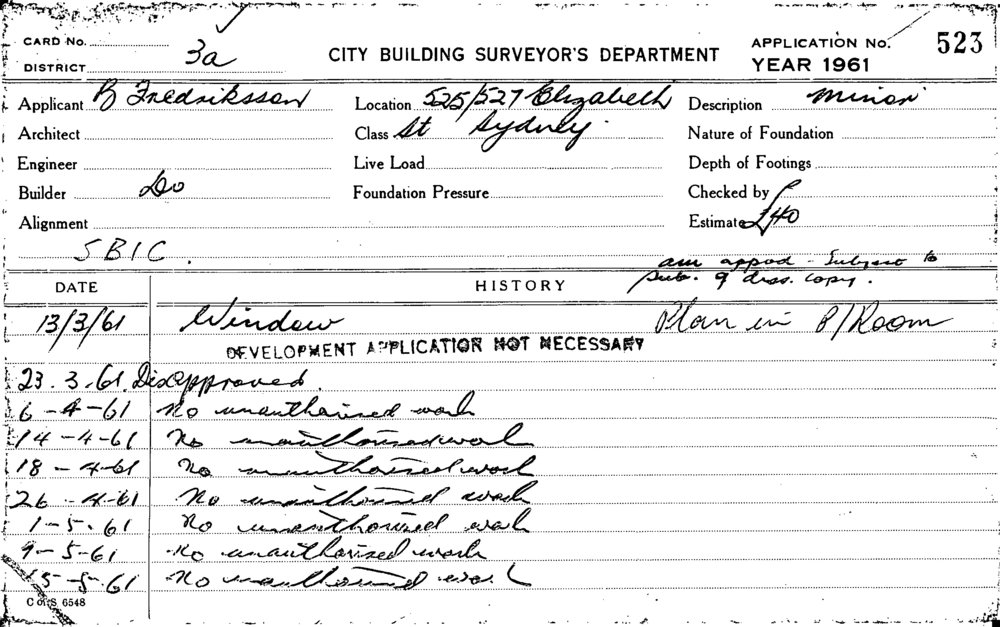 CARD No.
DISTRICT 3a
CITY BUILDING SURVEYOR'S DEPARTMENT
APPLICATION No. 523
YEAR 1961
Applicant B Fredriksson
Location 525/527 Elizabeth
Description minor
Architect
Class St Sydney
Nature of Foundation
Engineer
Live Load
Depth of Footings
Builder Do
Foundation Pressure
Checked by
Alignment
Estimate £40
SBIC.
am appod - Subject to
sub. of diss. copy.
DATE HISTORY
13/3/61 Window Plan in P/Room
DEVELOPMENT APPLICATION NOT NECESSARY
23.3.61. Disapproved.
6-4-61 No unauthorised work
14-4-61 No unauthorised work
18-4-61 No unauthorised work
26-4-61 No unauthorised work
1-5-61 No unauthorised work
9-5-61 No unauthorised work
15-5-61 No unauthorised work
C of S 6548